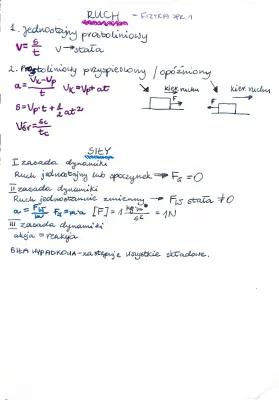 RUCH - FIZYKA SPR. 1
1. jednostajny prostoliniowy
v = s/t   v → stała
2. Prostoliniowy przyspieszony / opóźniony
a = Vk-Vp/t   Vk = Vp + at   kier. ruchu   kier. ruchu
F   F
s = Vp·t + 1/2 at2
Vśr = sc/tc
SIŁY
I zasada dynamiki
Ruch jednostajny lub spoczynek → Fs = 0
II zasada dynamiki
Ruch jednostajnie zmienny → Fw stała ≠ 0
a = Fw/m   Fs = m·a   [F] = 1 kg·m/s2 = 1N
III zasada dynamiki
akcja = reakcja
SIŁA WYPADKOWA - zastępuje wszystkie składowe.